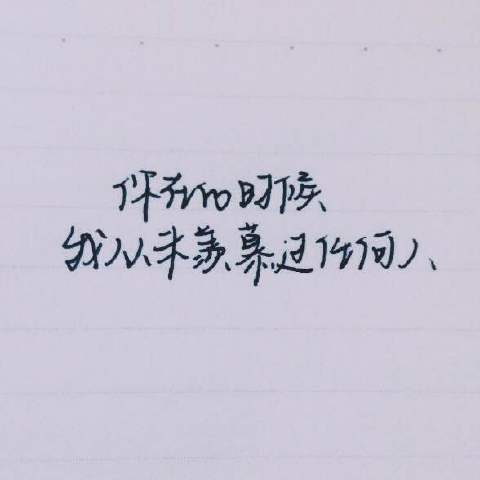 你在的时候
我从未羡慕过任何人